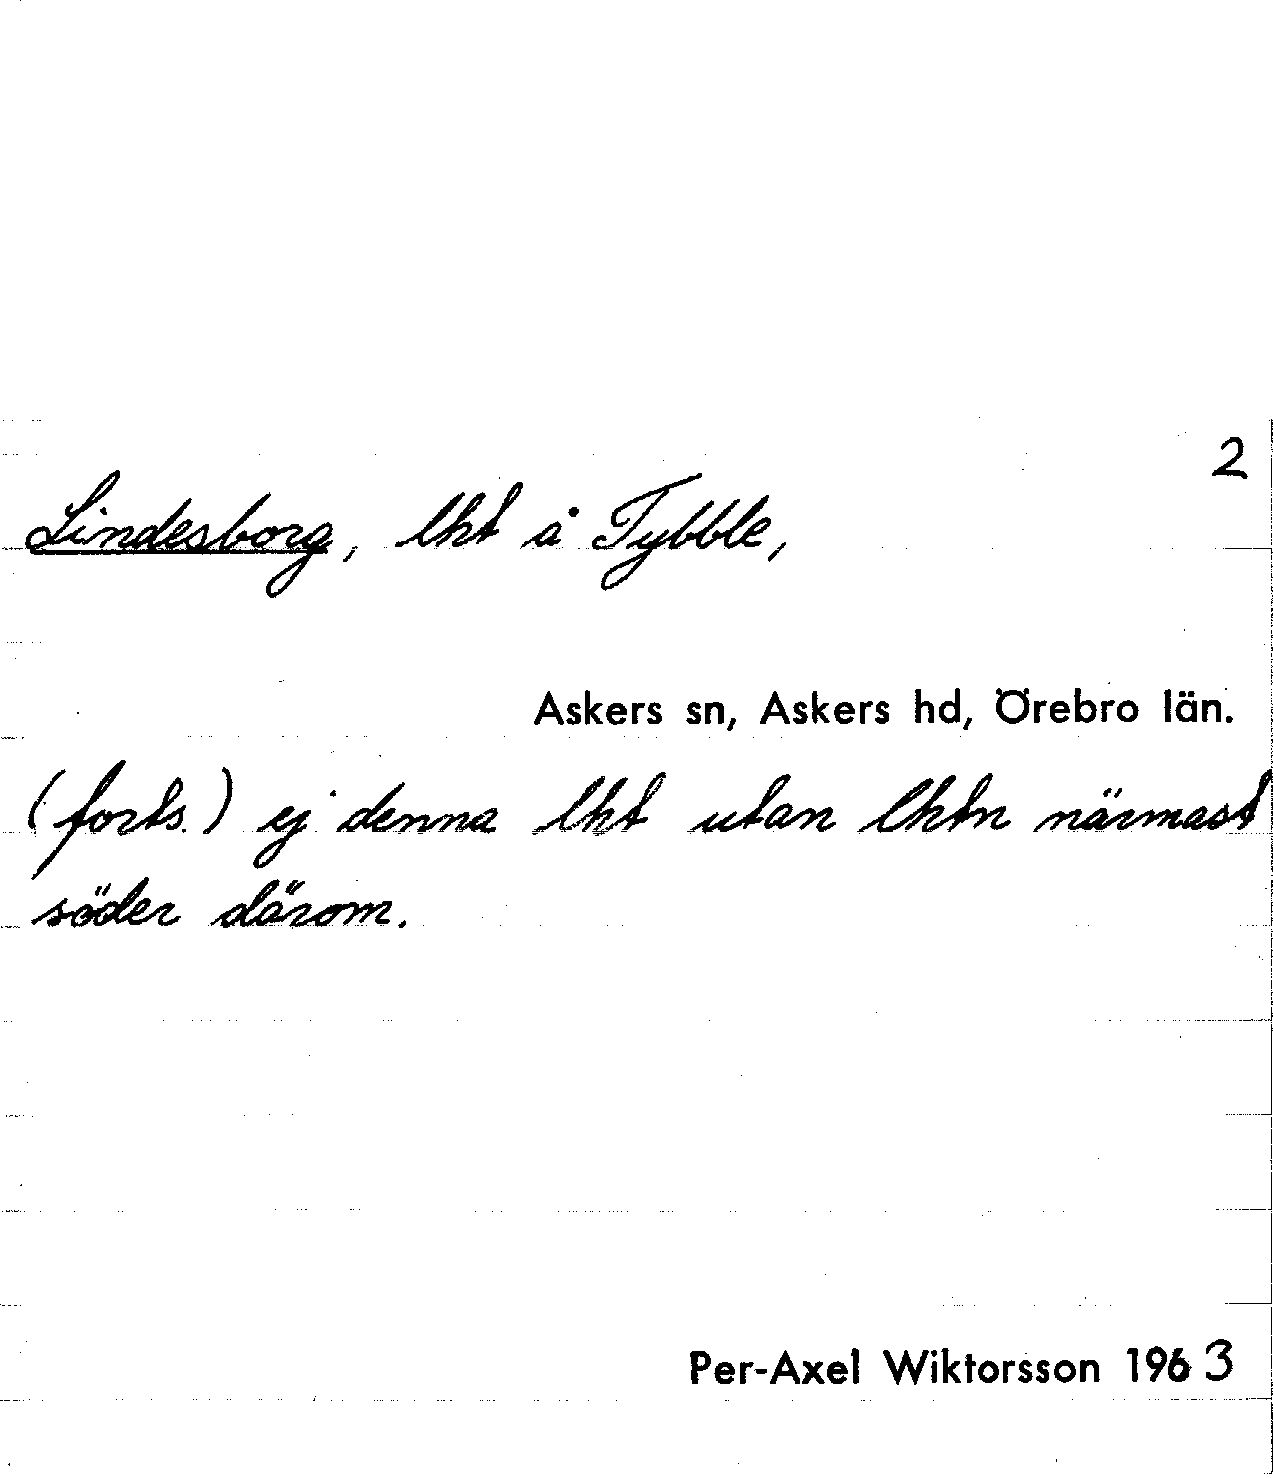 2
Lindesborg, lht å Tybble,
Askers sn, Askers hd, Örebro län.
(forts.) ej denna lht utan lhtn närmast
söder därom.
Per-Axel Wiktorsson 1963